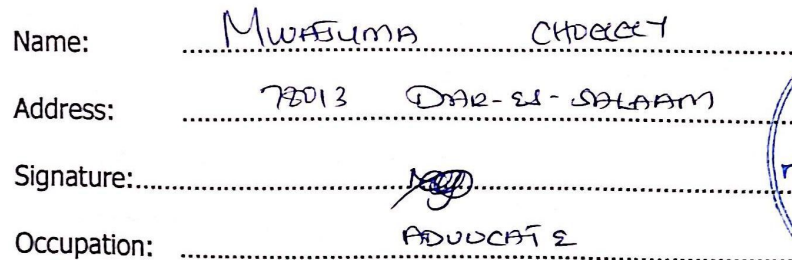 Name: MWAJUMA
Address: 78013 DAR-ES-SALAAM
Signature:
Occupation: ADVOCATE